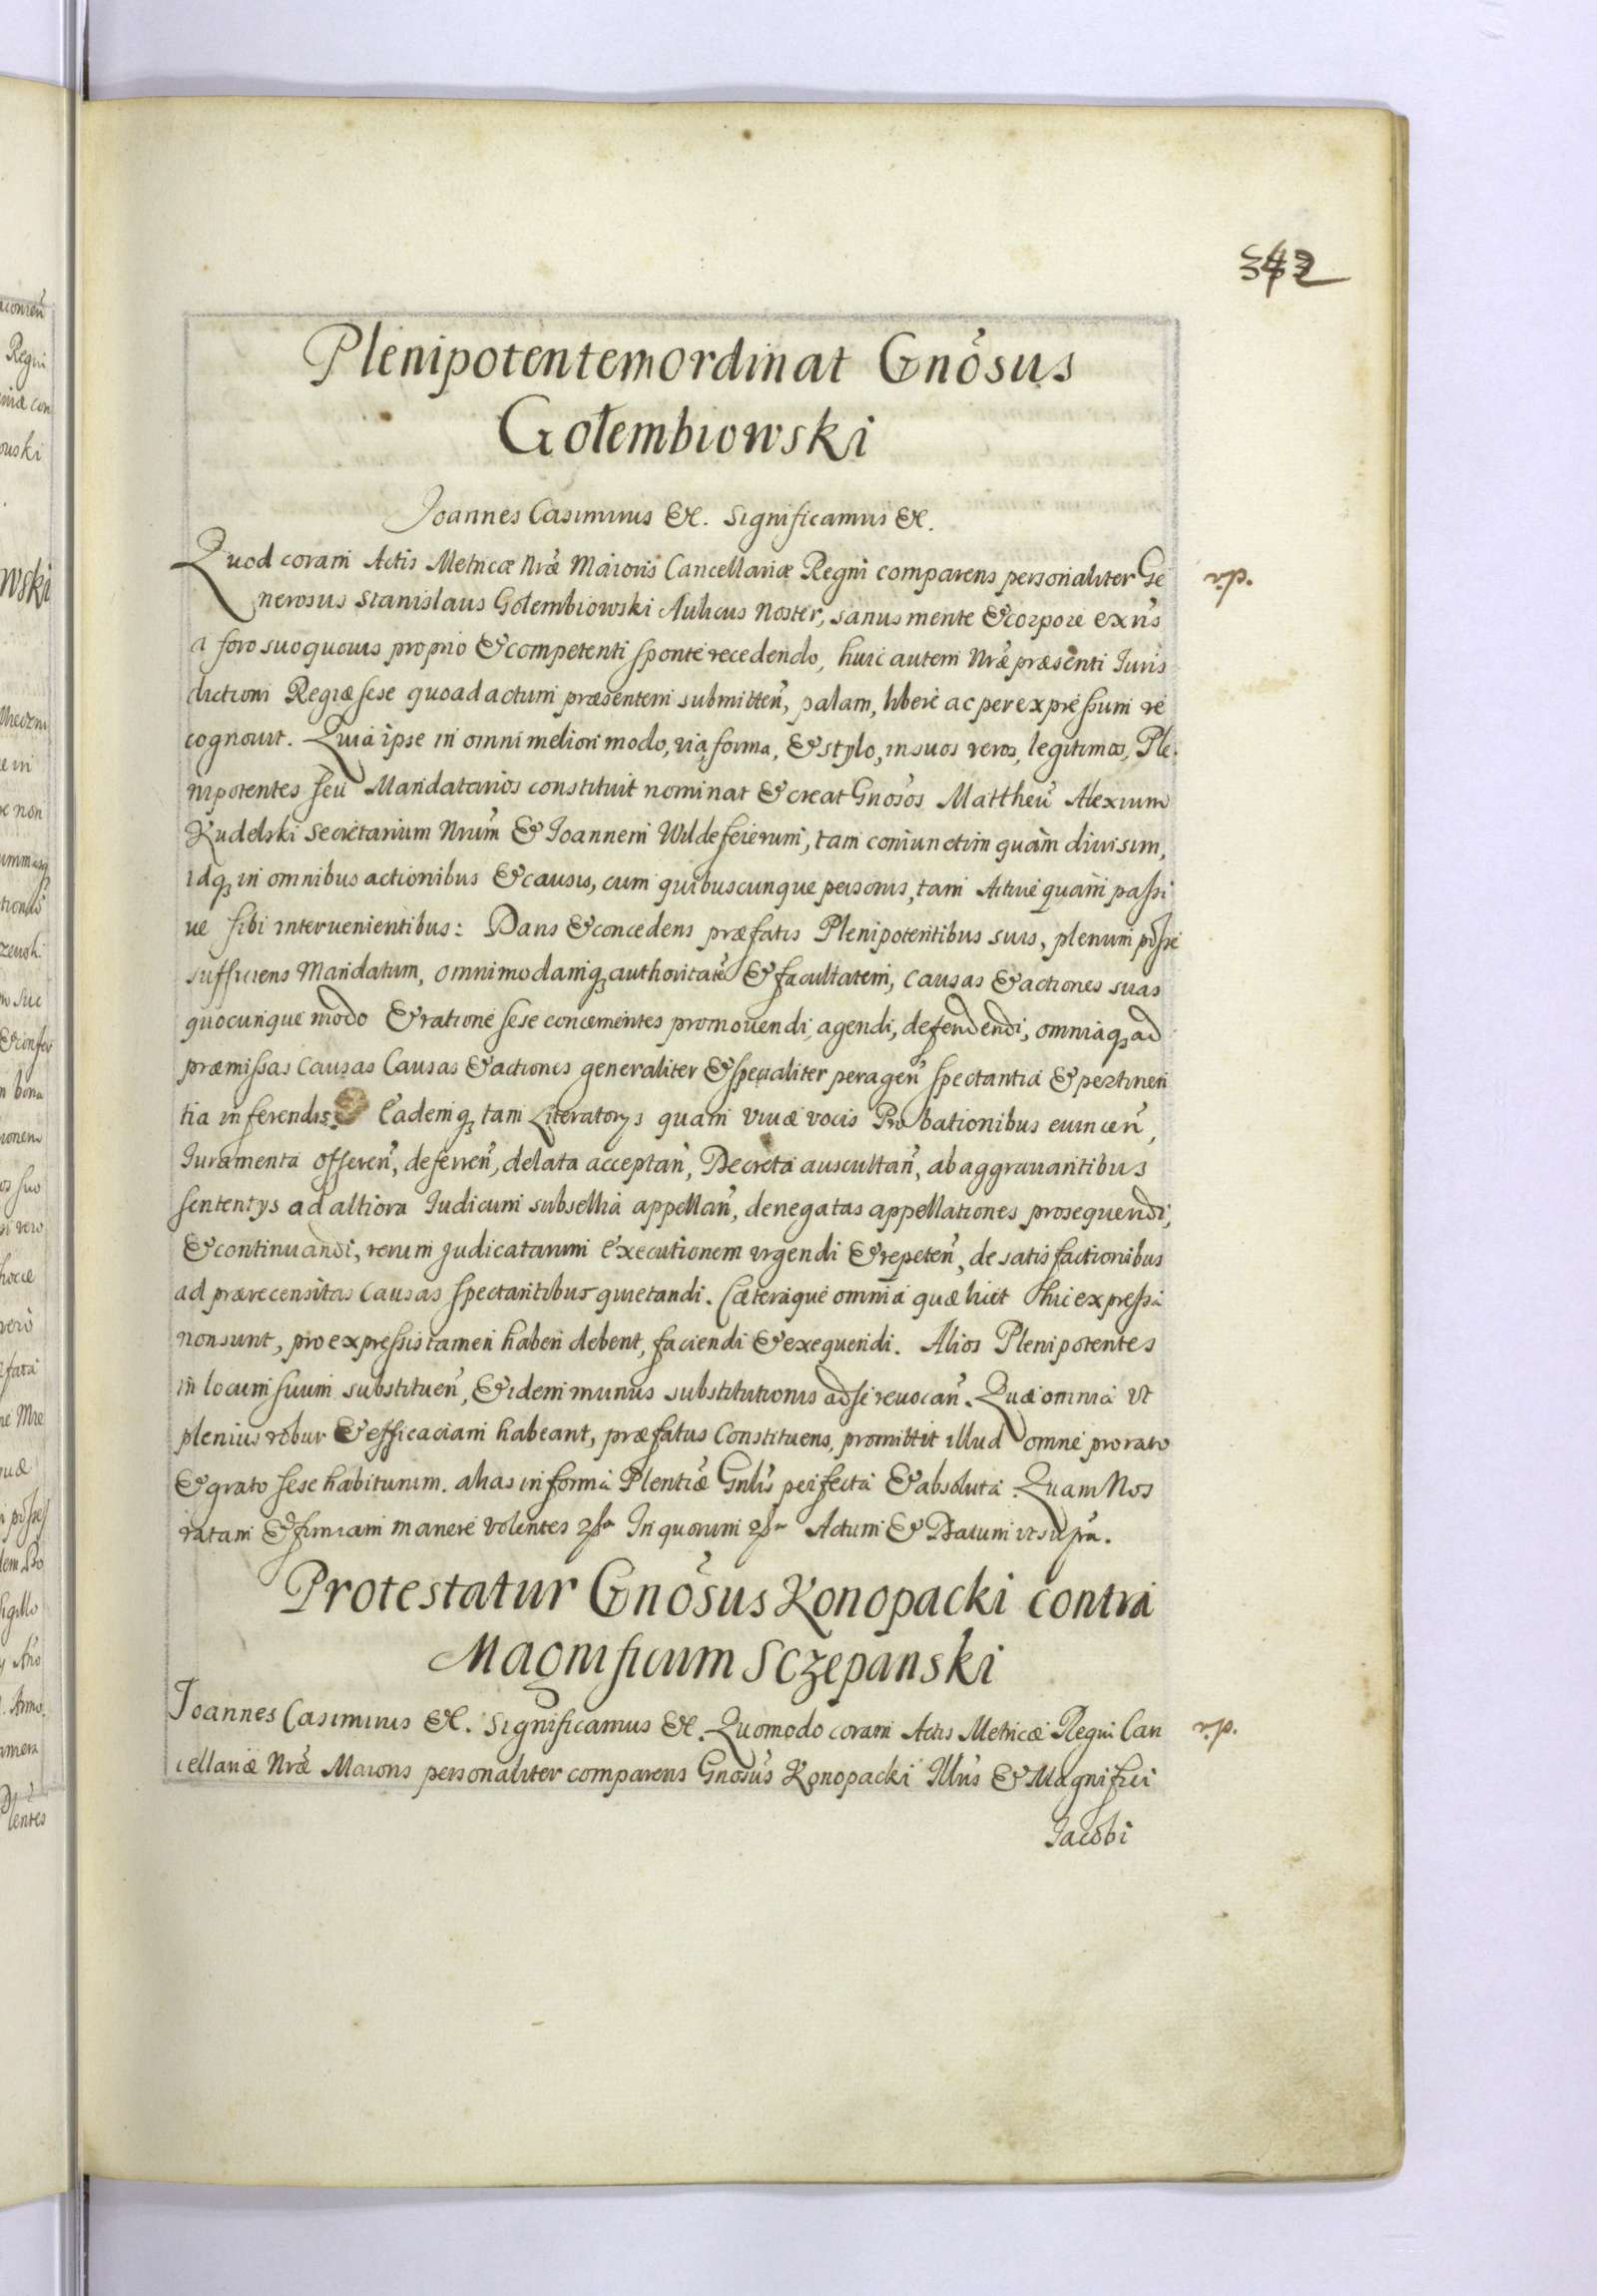 342
Plenipotentem ordinat Gnõsus
Gołembiowski
Joannes Casimirus &c. Significamus &c.
Quod coram Actis Metricæ Nræ Maioris Cancellariæ Regni comparens personaliter Ge
nerosus Stanislaus Gołembiowski Aulicus Noster, sanus mente & corpore exñs
a foro suo quovis proprio & competenti sponte recedendo, huic autem Nræ præsenti Juris
dictioni Regiæ sese quoad actum præsentem submitteñ, palam, libere ac per expressum re
cognovit. Quia ipse in omni meliori modo, via, forma, & stylo, in suos veros, legitimos, Ple
nipotentes seu Mandatarios constituit nominat & creat Gnosos Mattheũ Alexium
Kudelski Secretarium Nrum & Joannem Wildefeierum, tam coniunctim quàm diuisim,
idq, in omnibus actionibus & causis, cum quibuscunque personis, tam Actiue quam passi
ue sibi interuenientibus: Dans & concedens præfatis Plenipotentibus suis, plenum
sufficiens Mandatum, omnimodamq, authoritatẽ & facultatem, causas & actiones suas
quocunque modo & ratione sese concernentes promouendi, agendi, defendendi, omniaq, ad
præmissas causas Causas & actiones generaliter & specialiter perageñ spectantia & pertinen
tia inferendis. Eademq, tam Literatorys quam viuæ vocis Probationibus euinceñ,
Juramenta offereñ, deferreñ, delata acceptañ, Decreta auscultañ, ab aggrauantibus
sententys ad altiora Iudicum subsellia appellañ, denegatas appellationes prosequendi,
& continuandi, rerum judicatarum executionem urgendi & repeteñ, de satisfactionibus
ad prærecensitas causas spectantibus quietandi. Cæteraque omnia quæ licèt hic expressa
non sunt, pro expressis tamen haberi debent, faciendi & exequendi. Alios Plenipotentes
in locum suum substitueñ, & idem munus substitutionis ad se reuocañ. Quæ omnia ut
plenius robur & efficaciam habeant, præfatus Constituens, promittit illud omne pro rato
& grato sese habiturum. alias in forma Plentiæ Gnlis perfecta & absoluta. Quam Nos
ratam & firmam manere volentes In quorum Actum & Datum ut supra.
Protestatur Gnõsus Konopacki contra
Magnificum Sczepanski
Joannes Casimirus &c. Significamus &c. Quomodo coram Actis Metricæ Regni Can
cellariæ Nræ Maioris personaliter comparens Gnosus Konopacki Illris & Magnifici
Jacobi